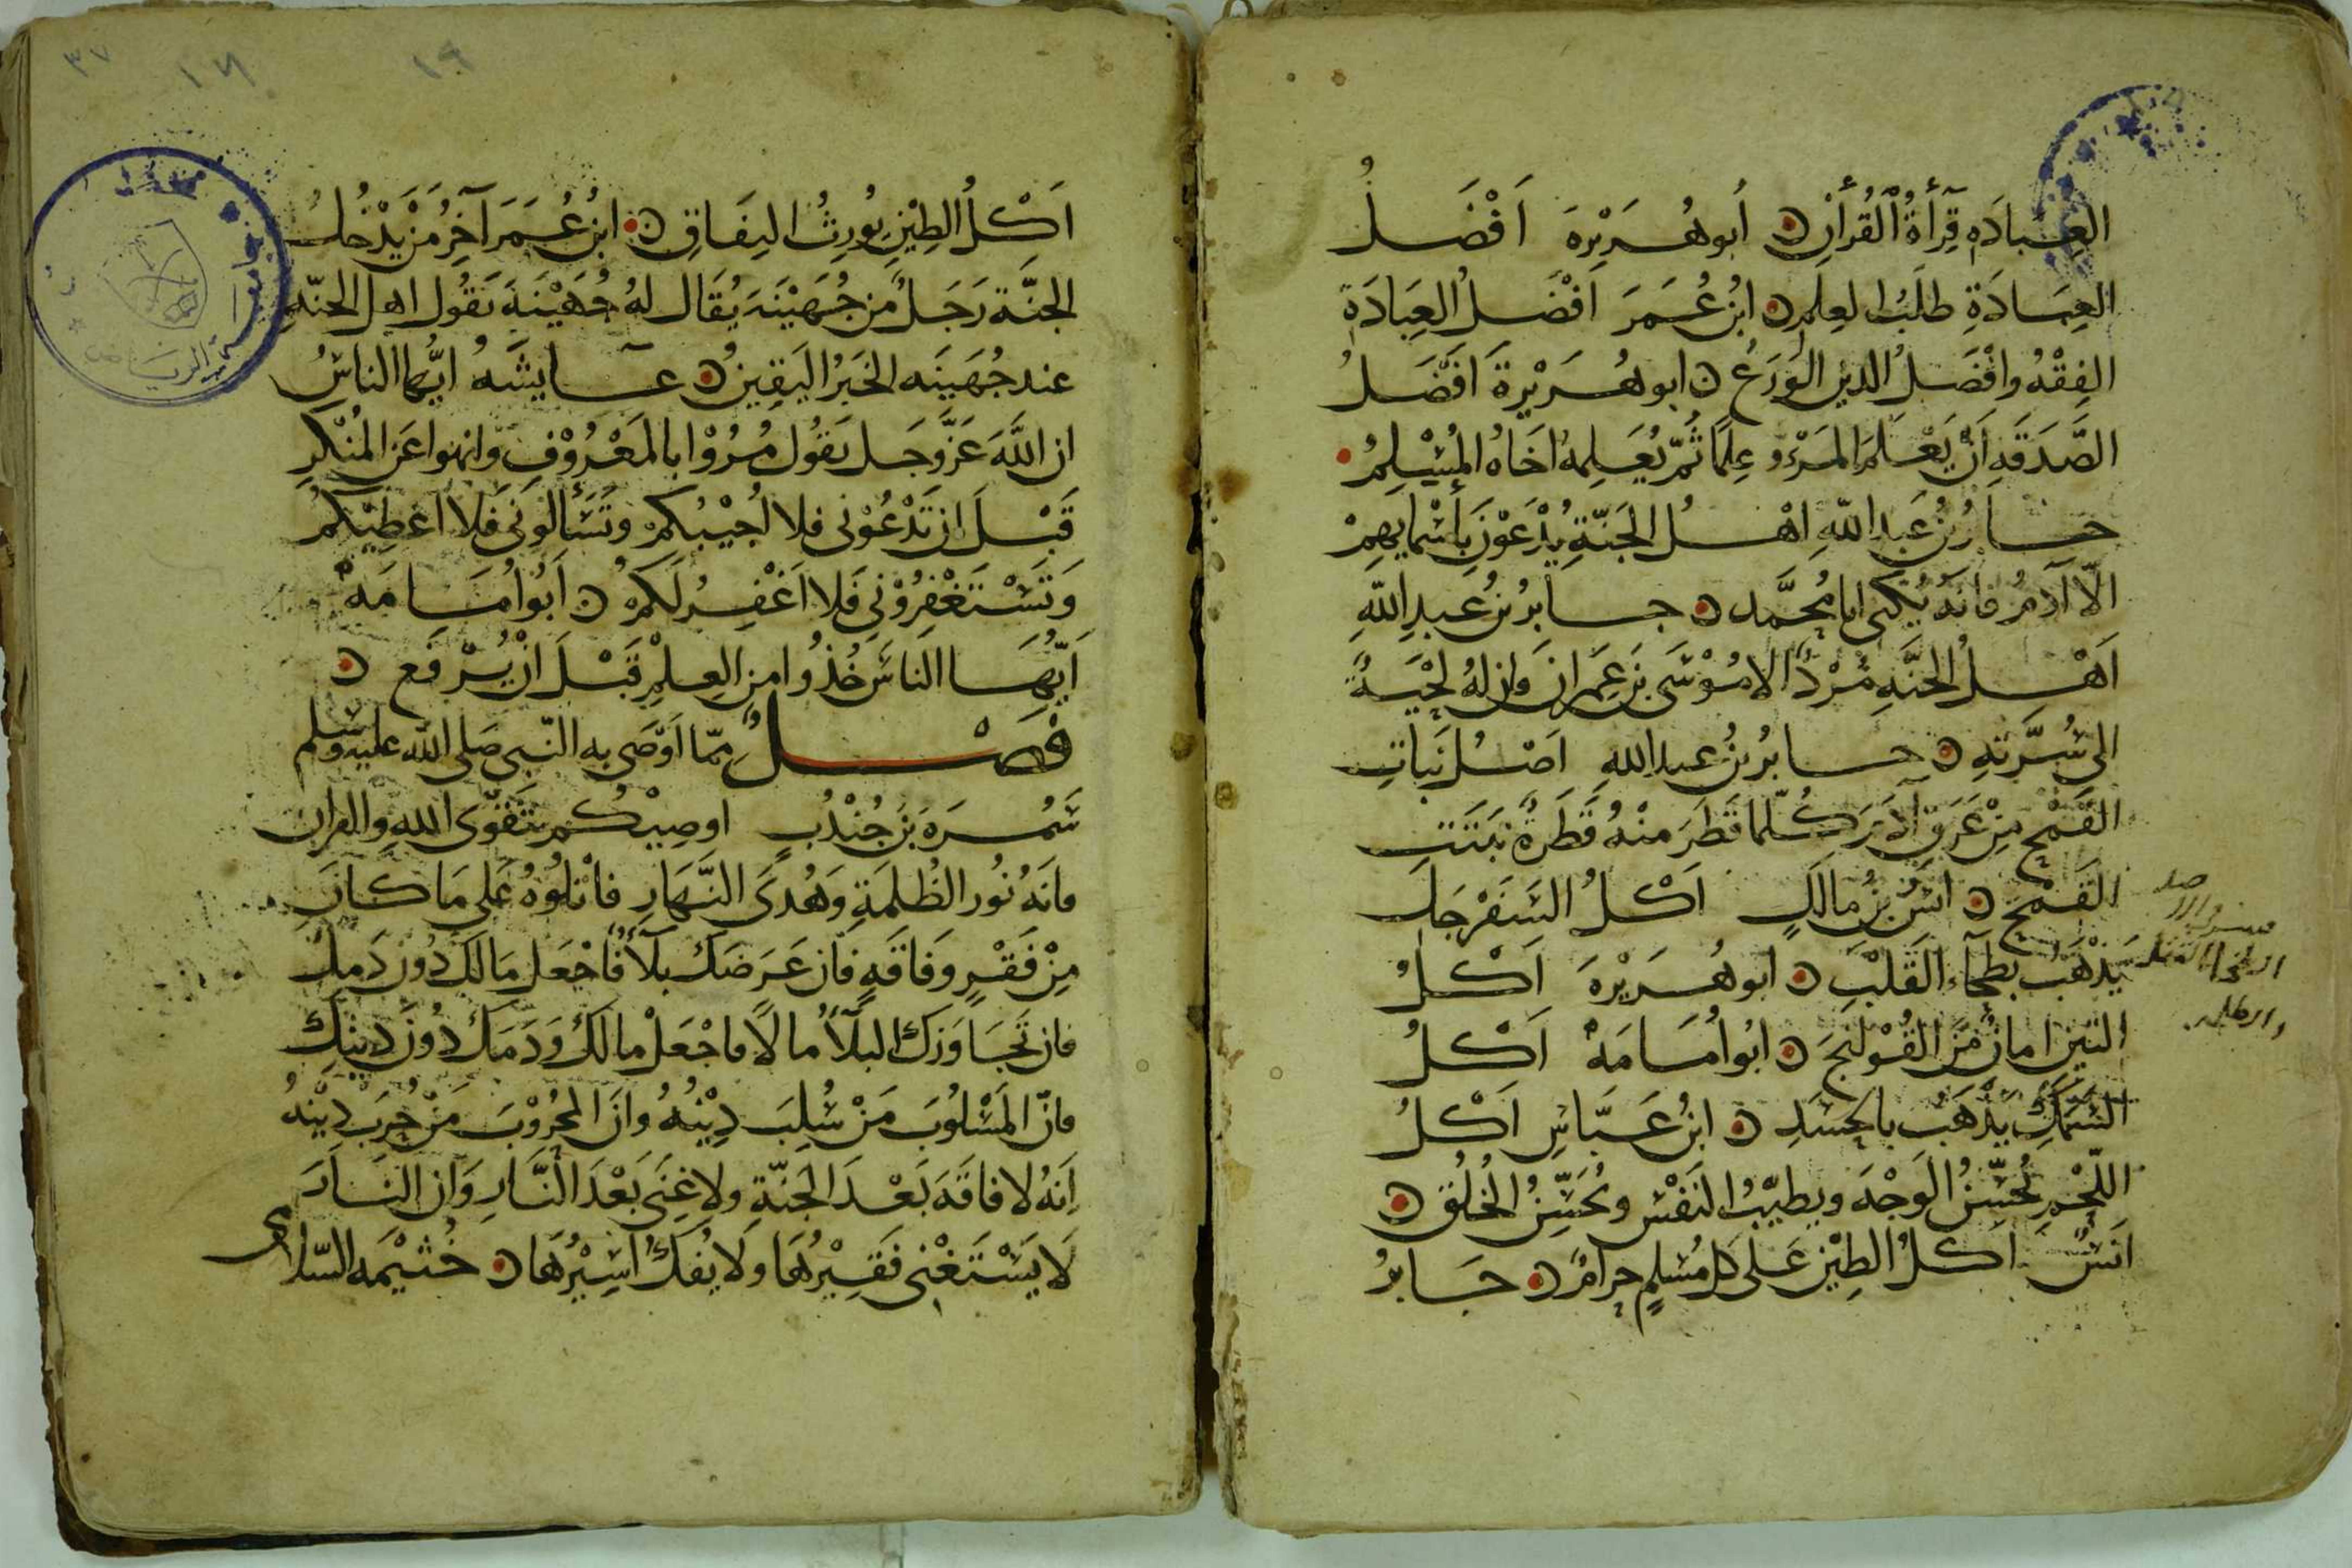 العِبَادَه قِرَأةُ الْقُرأن ں ابُو هُرَيْرَة اَفْضَلُ
العِبَادَةِ طلَبُ العِلم ں ابنُ عُمَرَ اَفْضَلُ العِبَادَةِ
الفِقْهُ وافْضَلُ الدين الوَرَعُ ں ابو هُرَيْرةَ اَفْضَلُ
الصَّدَقَه اَنْ يَعْلَمَ المَرْءُ عِلمًا ثُمّ يُعَلِمهُ اخَاهُ المُسْلِمُ
جابرُ بنُ عَبدِ اللّهِ اهْلُ الجَنّةِ يُدْعَوْنَ بِأسْمايهِمْ
الّا آدَمُ فانهُ يُكنى ابا مُحمَّد ں جابرُ بنُ عبدِ اللّهِ
اَهْلُ الجنَّهِ مُرْدٌ الا مُوْسَى بنَ عِمرانَ وَان لهُ لحْيَةً
الى سُرَّتهِ ں جابرُ بنُ عبد اللهِ اصْلُ نَباتِ
القَمْح مِنْ عَرَق آدَمَ كُلّما قَطَرَ منْهُ قَطَرةٌ نبَتَتِ
القَمْح ں انسُ بنُ مالكٍ اَكْلُ السَفَرْجَلِ
يَذْهَبُ بطخآء القَلْبِ ں ابو هُرَيْرةَ اَكْلُ
التين امانٌ مِنَ القُوْلنج ں ابُو اُمَامَهْ اَكْلُ
السَمَكِ يَذْهَبُ بالجسَدِ ں ابنُ عَبَّاسٍ اَكْلُ
اللّحْمِ يُحَسِّنُ الوَجْهَ ويطيّبُ النَفْس ويُحَسِّنُ الخُلُق ں
انَسٌ اكلُ الطِيْن عَلى كل مُسْلمٍ حرامٌ ں جَابرُ
الطخاء الثقل
والظلمه
١٩ ١٨ ٣٧
اَكْلُ الطِيْنِ يُورِثُ النِفَاقِ ں ابنُ عُمَرَ آخِرُ مَنْ يَدْخُلُ
الجنَّة رَجَلٌ مِن جُهَيْنَةَ يُقَال لهُ جُهَيْنَةَ يَقُول اهل الجنّهِ
عند جُهَيْنَه الخَبَرُ اليَقِينُ ں عايشَهُ ايُّها الناسُ
ان اللَّهَ عَزَّوَجَل يَقُول مُرُوْا بالمَعْرُوْفِ وانهوا عَن المُنْكَرِ
قَبْلَ ان تَدْعُوْنى فلا اُجِيْبُكمْ وتَسَألونى فَلا اعْطِيْكمُ
وَتَسْتَغْفِرُوْنى فَلا اَغْفِرُ لَكمْ ں اَبُو اُمَامَهْ
اَيُّهَا الناسَ خُذُوا من العِلْمِ قَبْلَ انْ يُرْفَع ں
فَصْلٌ مِمّا اَوْصَى به النّبى صَلى الله عليه وسلم
سَمُرَهَ بنَ جُنْدُبٍ اوصِيْكُم بتَقوَى اللهِ والقران
فانَهُ نُور الظُلمَةِ وَهُدَى النَّهَارِ فاتْلُوْهُ عَلى مَا كانَ
مِنْ فَقْرٍ وَفَاقَهٍ فان عَرَضَك بَلَأٌ فَاجْعَل مَالَكَ دُونَ دَمِكَ
فان تَجَاوَزَك البلأُ مالاً فاجْعَلْ مالكَ وَدَمَكَ دُوْنَ دِينِكَ
فانّ المَسْلُوْبَ مَنْ سُلِبَ دِيْنُهُ وانَ المحْرُوْبَ مَنْ حُرِبَ دِيْنهُ
اِنَهُ لا فاقَهَ بَعْدَ الجَنّةِ ولا غِنَى بَعْدَ النَّارِ وَان النَارَ
لَا يَسْتَغْنِى فَقِيْرُهَا ولَا يُفَكُ اَسِيْرُهَا ں خُثَيْمه السّلامى